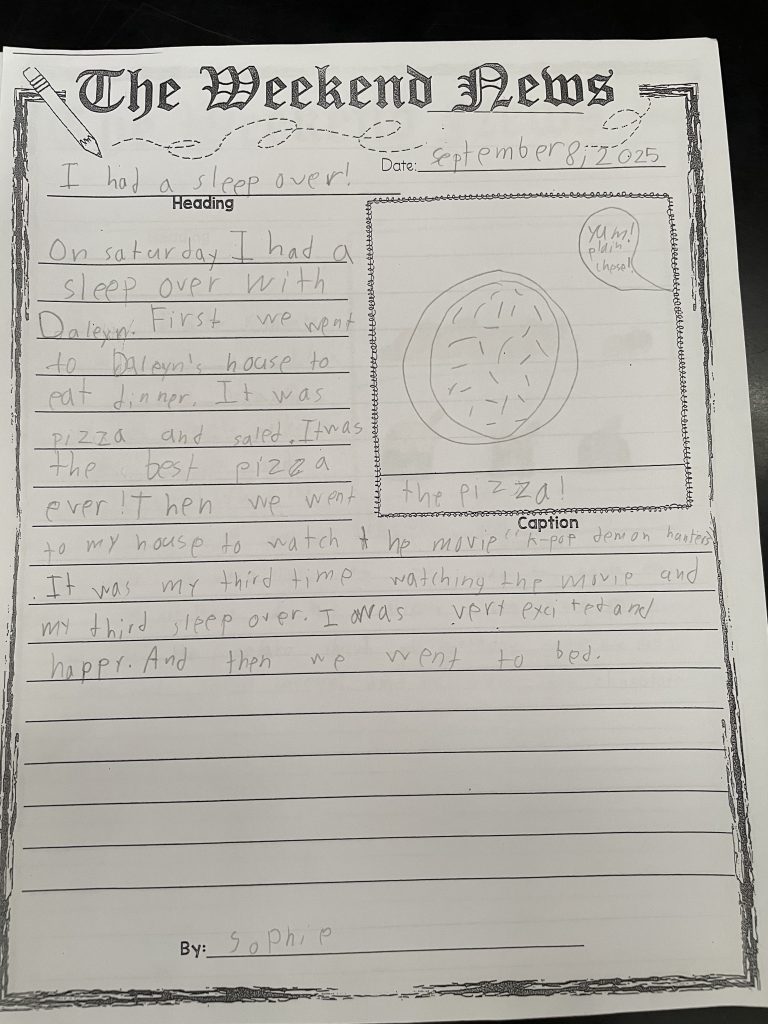 The Weekend News
Date: september 8, 2025
I had a sleep over!
Heading
On saturday I had a
sleep over with
Daleyn. First we went
to Daleyn's house to
eat dinner. It was
pizza and saled. It was
the best pizza
ever! Then we went
Yum!
plain
chese!
the pizza!
Caption
to my house to watch the movie "k-pop demon hanters
. It was my third time watching the movie and
my third sleep over. I was very excited and
happy. And then we went to bed.
By: sophie